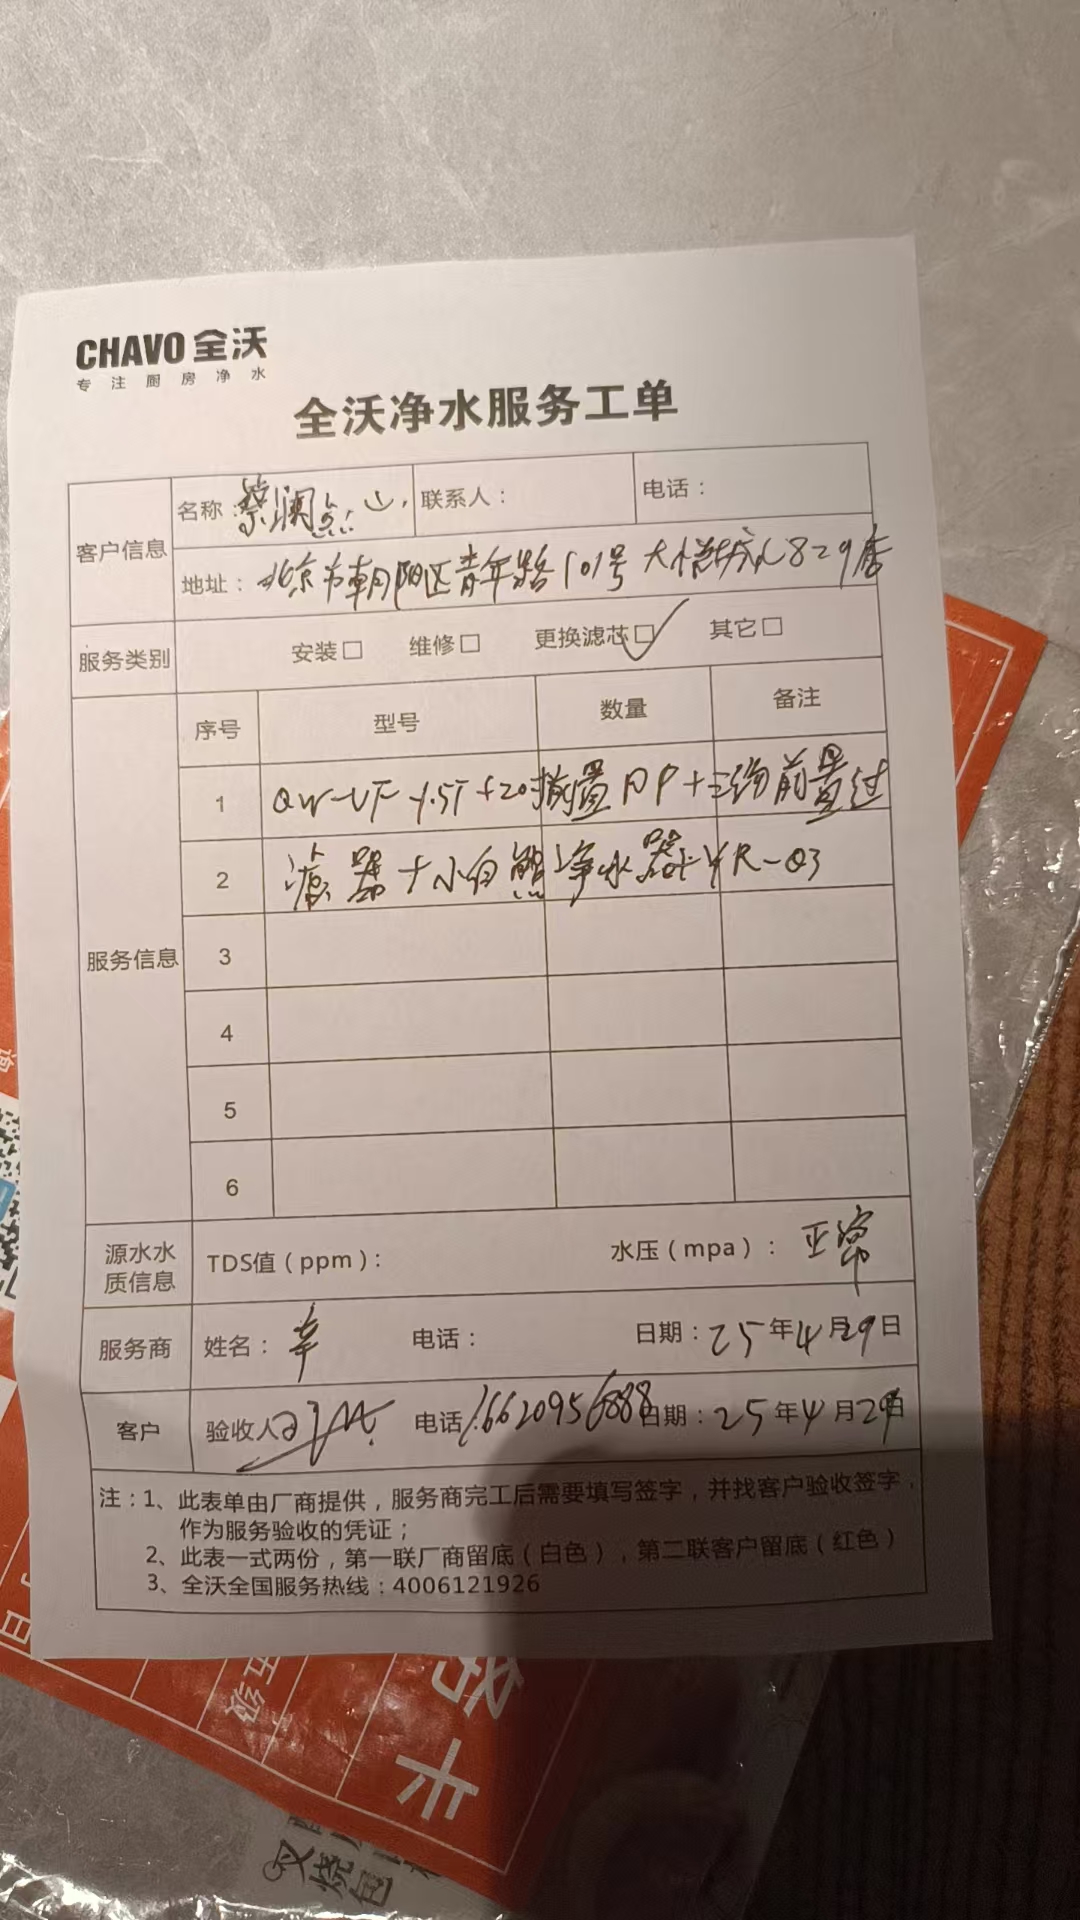 CHAVO 全沃
专注厨房净水
全沃净水服务工单
客户信息
名称：蔡澜点心 联系人： 电话：
地址：北京市朝阳区青年路101号大悦城 829店
服务类别 安装□ 维修□ 更换滤芯□ 其它□
服务信息
序号 型号 数量 备注
1 QW-UF-1.5T+20寸前置PP+三级前置过
2 滤器+小白熊净水器+YR-03
3
4
5
6
源水水质信息 TDS值（ppm）： 水压（mpa）：正常
服务商 姓名：辛 电话： 日期：25年4月29日
客户 验收人 电话16620956888 日期：25年4月29日
注：1、此表单由厂商提供，服务商完工后需要填写签字，并找客户验收签字，
作为服务验收的凭证；
2、此表一式两份，第一联厂商留底（白色），第二联客户留底（红色）
3、全沃全国服务热线：4006121926
五级
卡
叉烧包